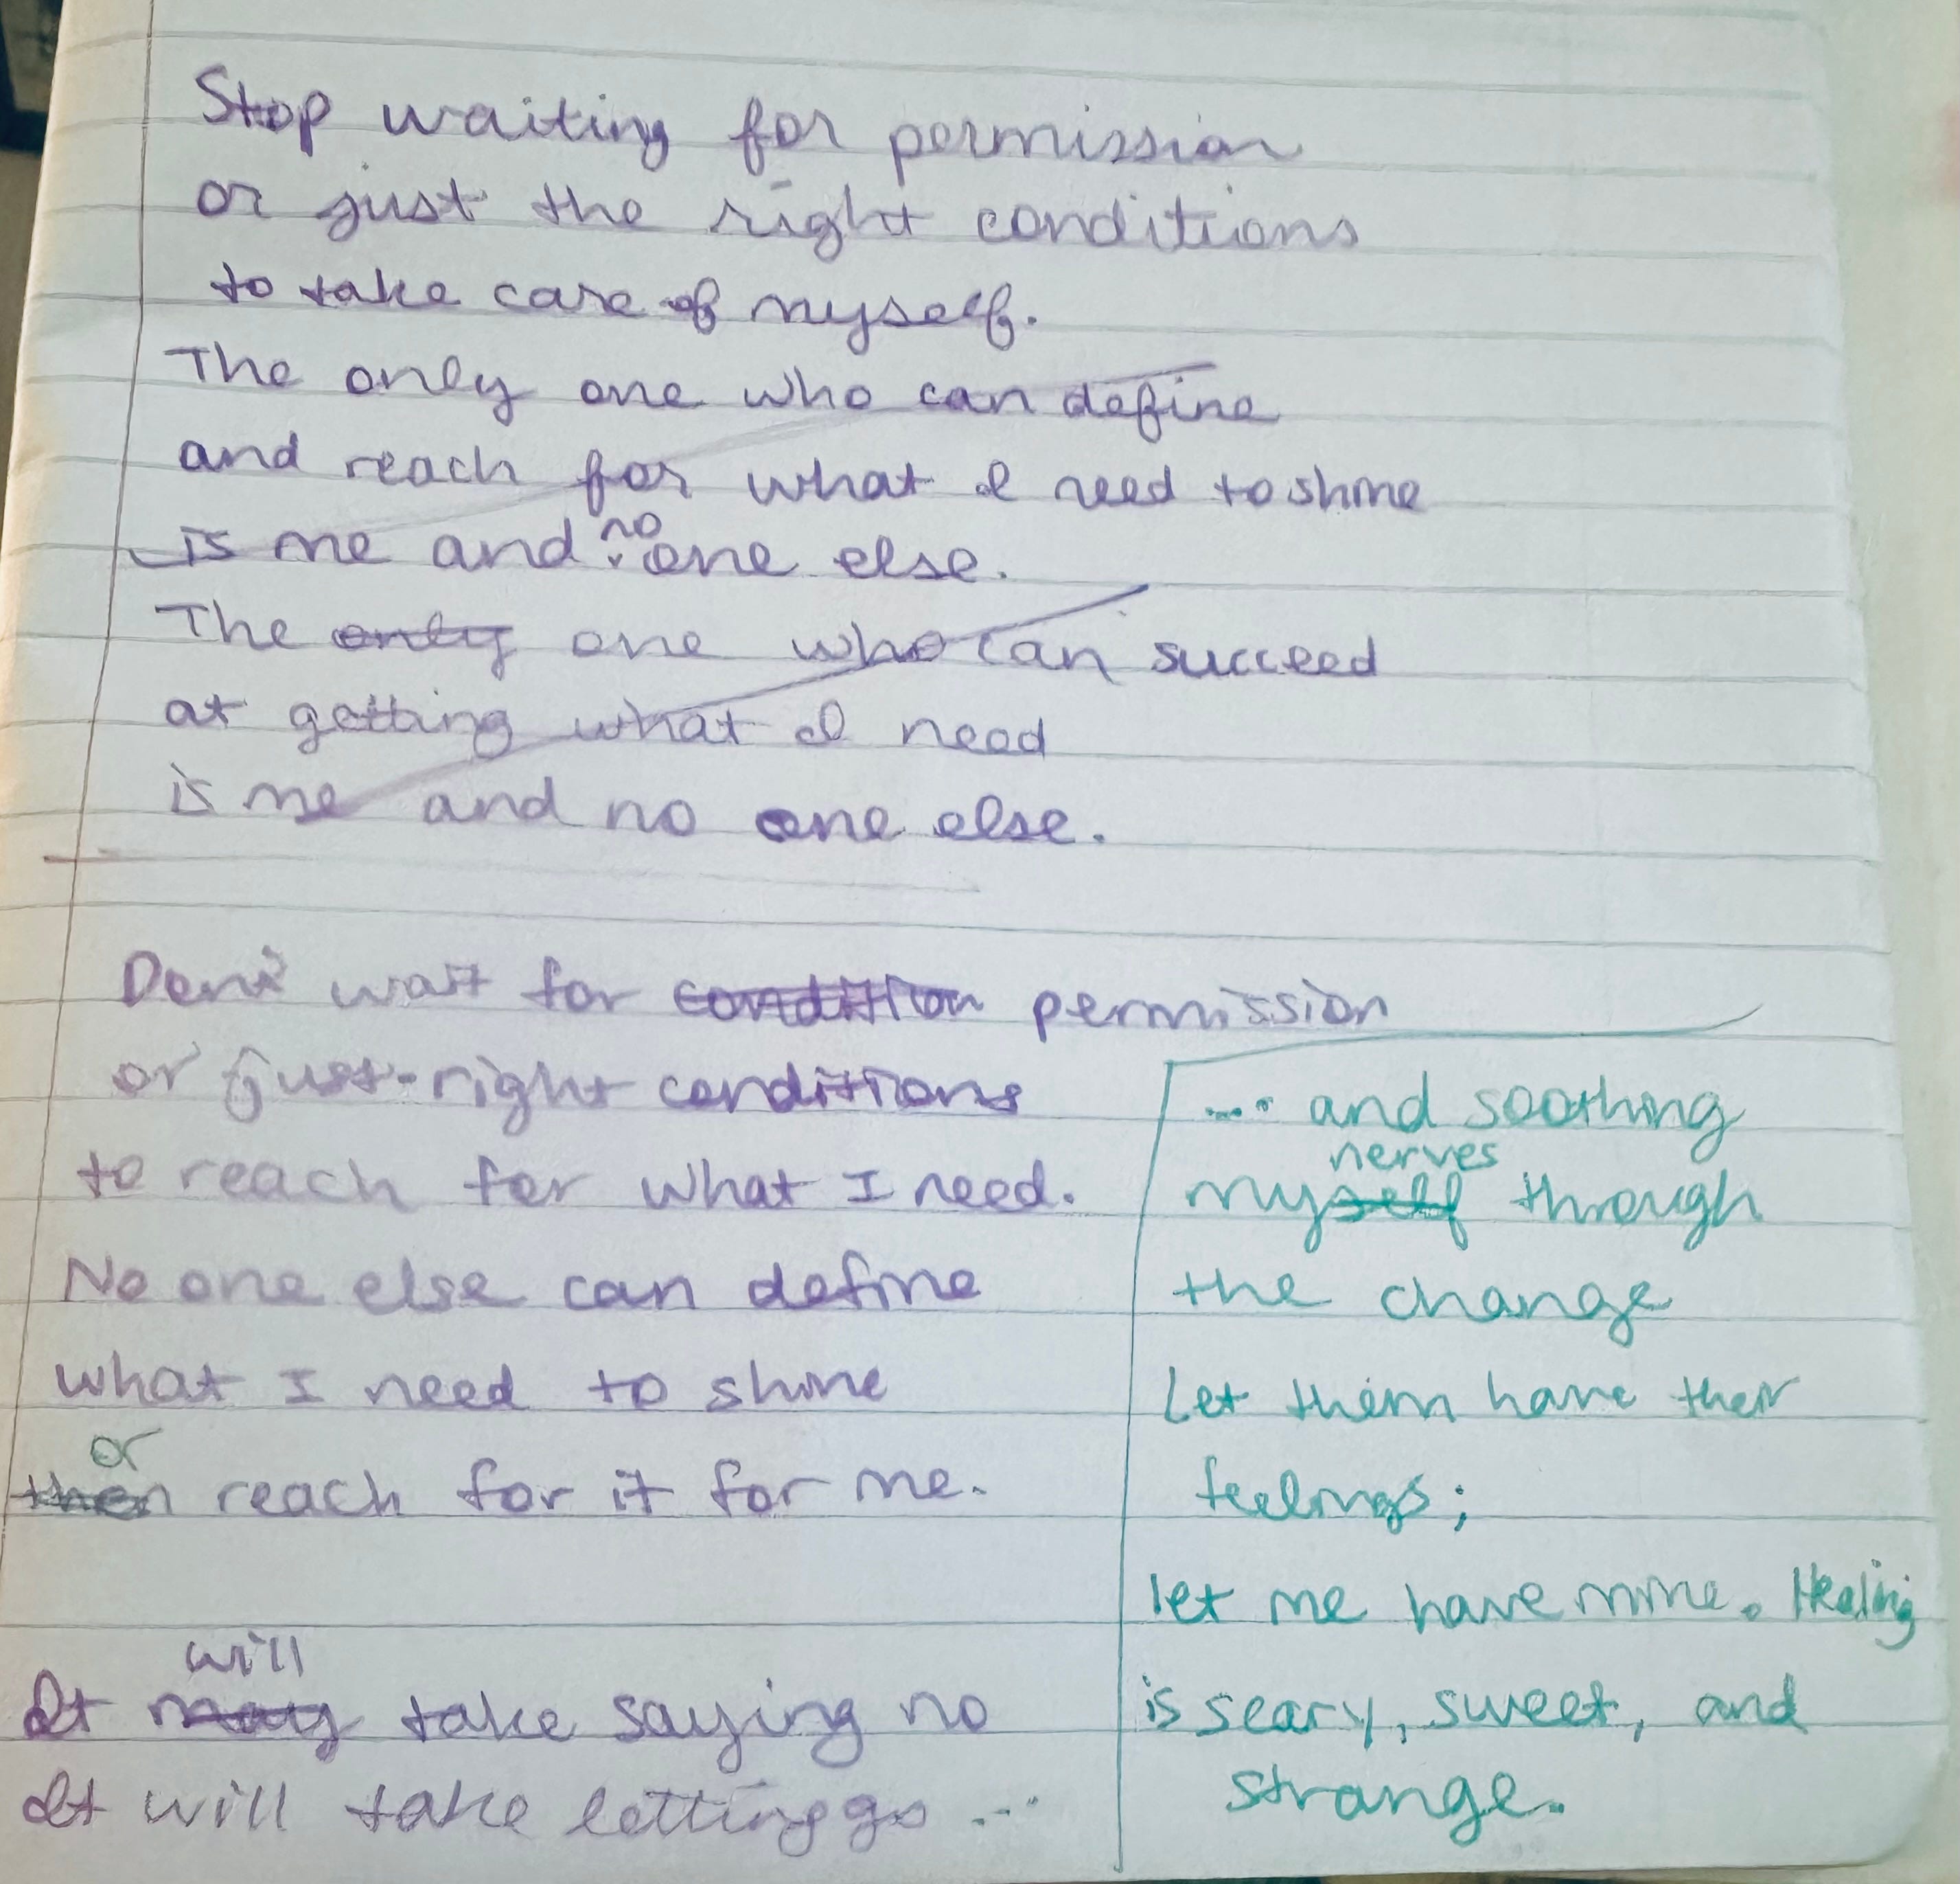 Stop waiting for permission
or just the right conditions
to take care of myself.
The only one who can define
and reach for what I need to shine
is me and no one else.
The only one who can succeed
at getting what I need
is me and no one else.
Don't wait for condition permission
or just-right conditions
to reach for what I need.
No one else can define
what I need to shine
or
then reach for it for me.
will
It may take saying no
It will take letting go ...
.... and soothing
nerves
myself through
the change
Let them have their
feelings;
let me have mine. Healing
is scary, sweet, and
strange.